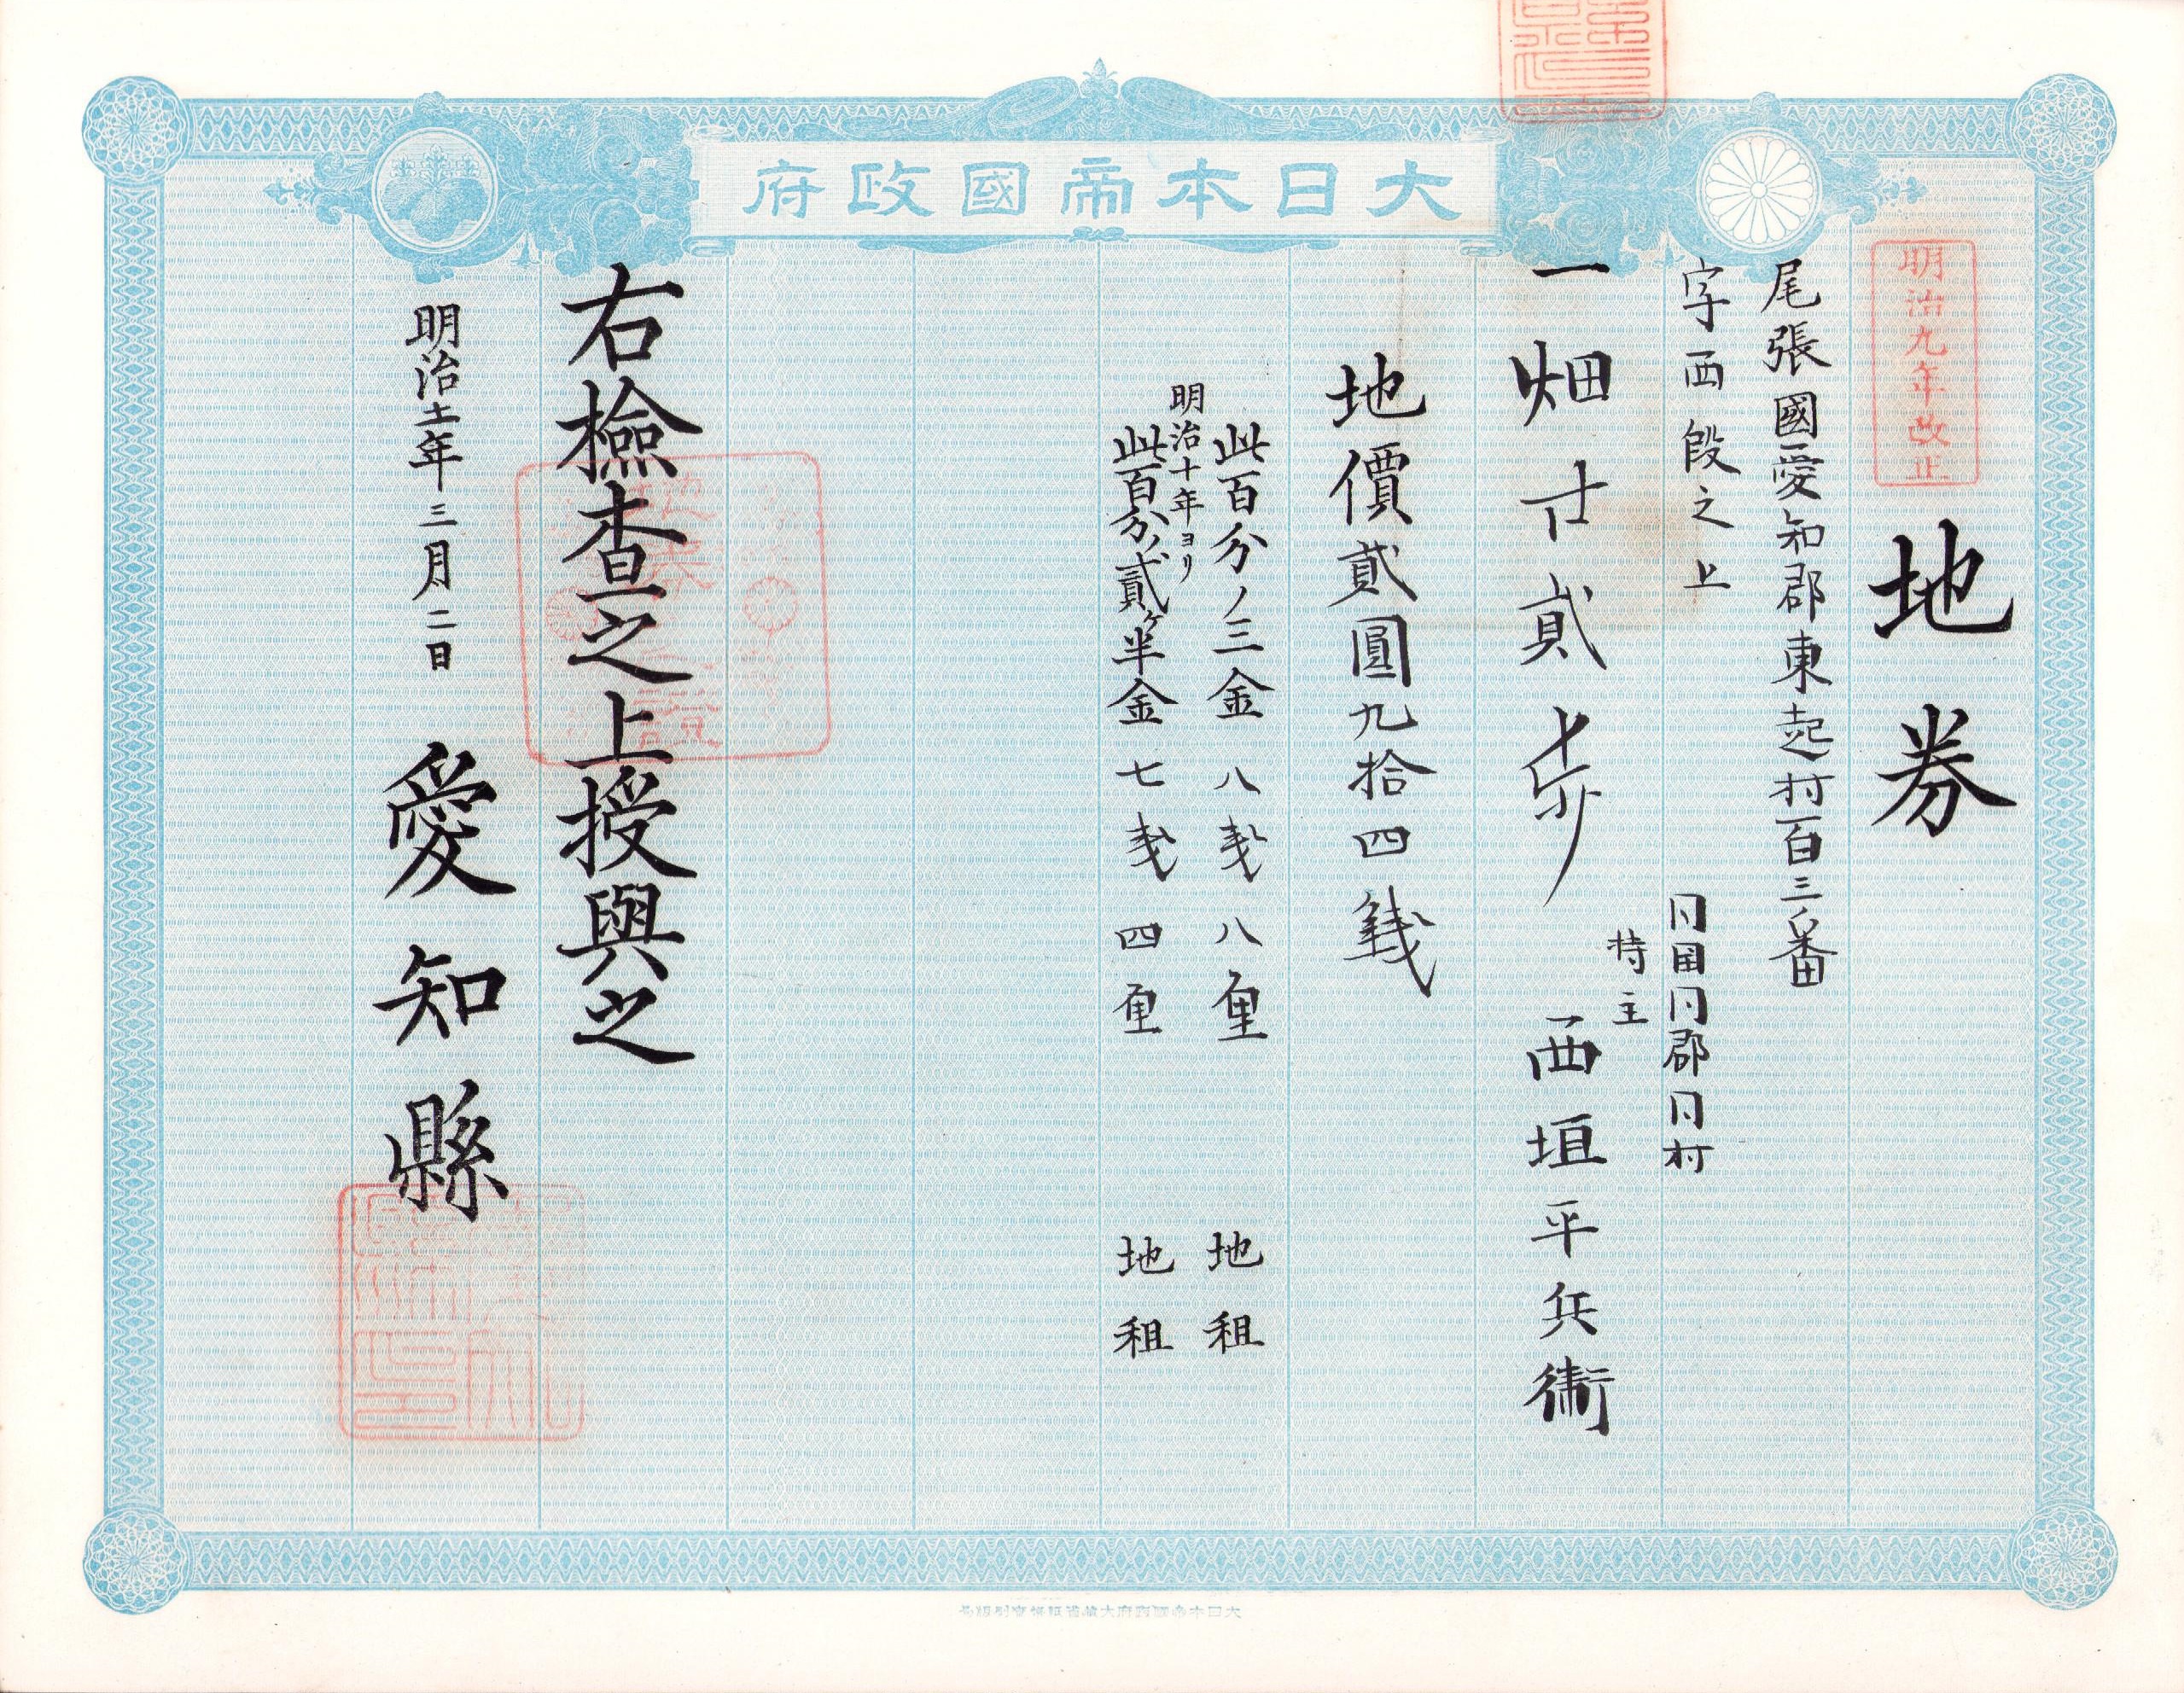 大日本帝國政府
明治九年改正
地券
尾張國愛知郡東起村百三番
字西段之上
一畑廿貳歩
同国同郡同村
持主
西垣平兵衞
地價貳圓九拾四銭
此百分ノ三金八戋八厘 地租
明治十年ヨリ
此百分ノ貳ヶ半金七戋四厘 地租
右檢査之上授與之
明治十一年三月二日
愛知縣